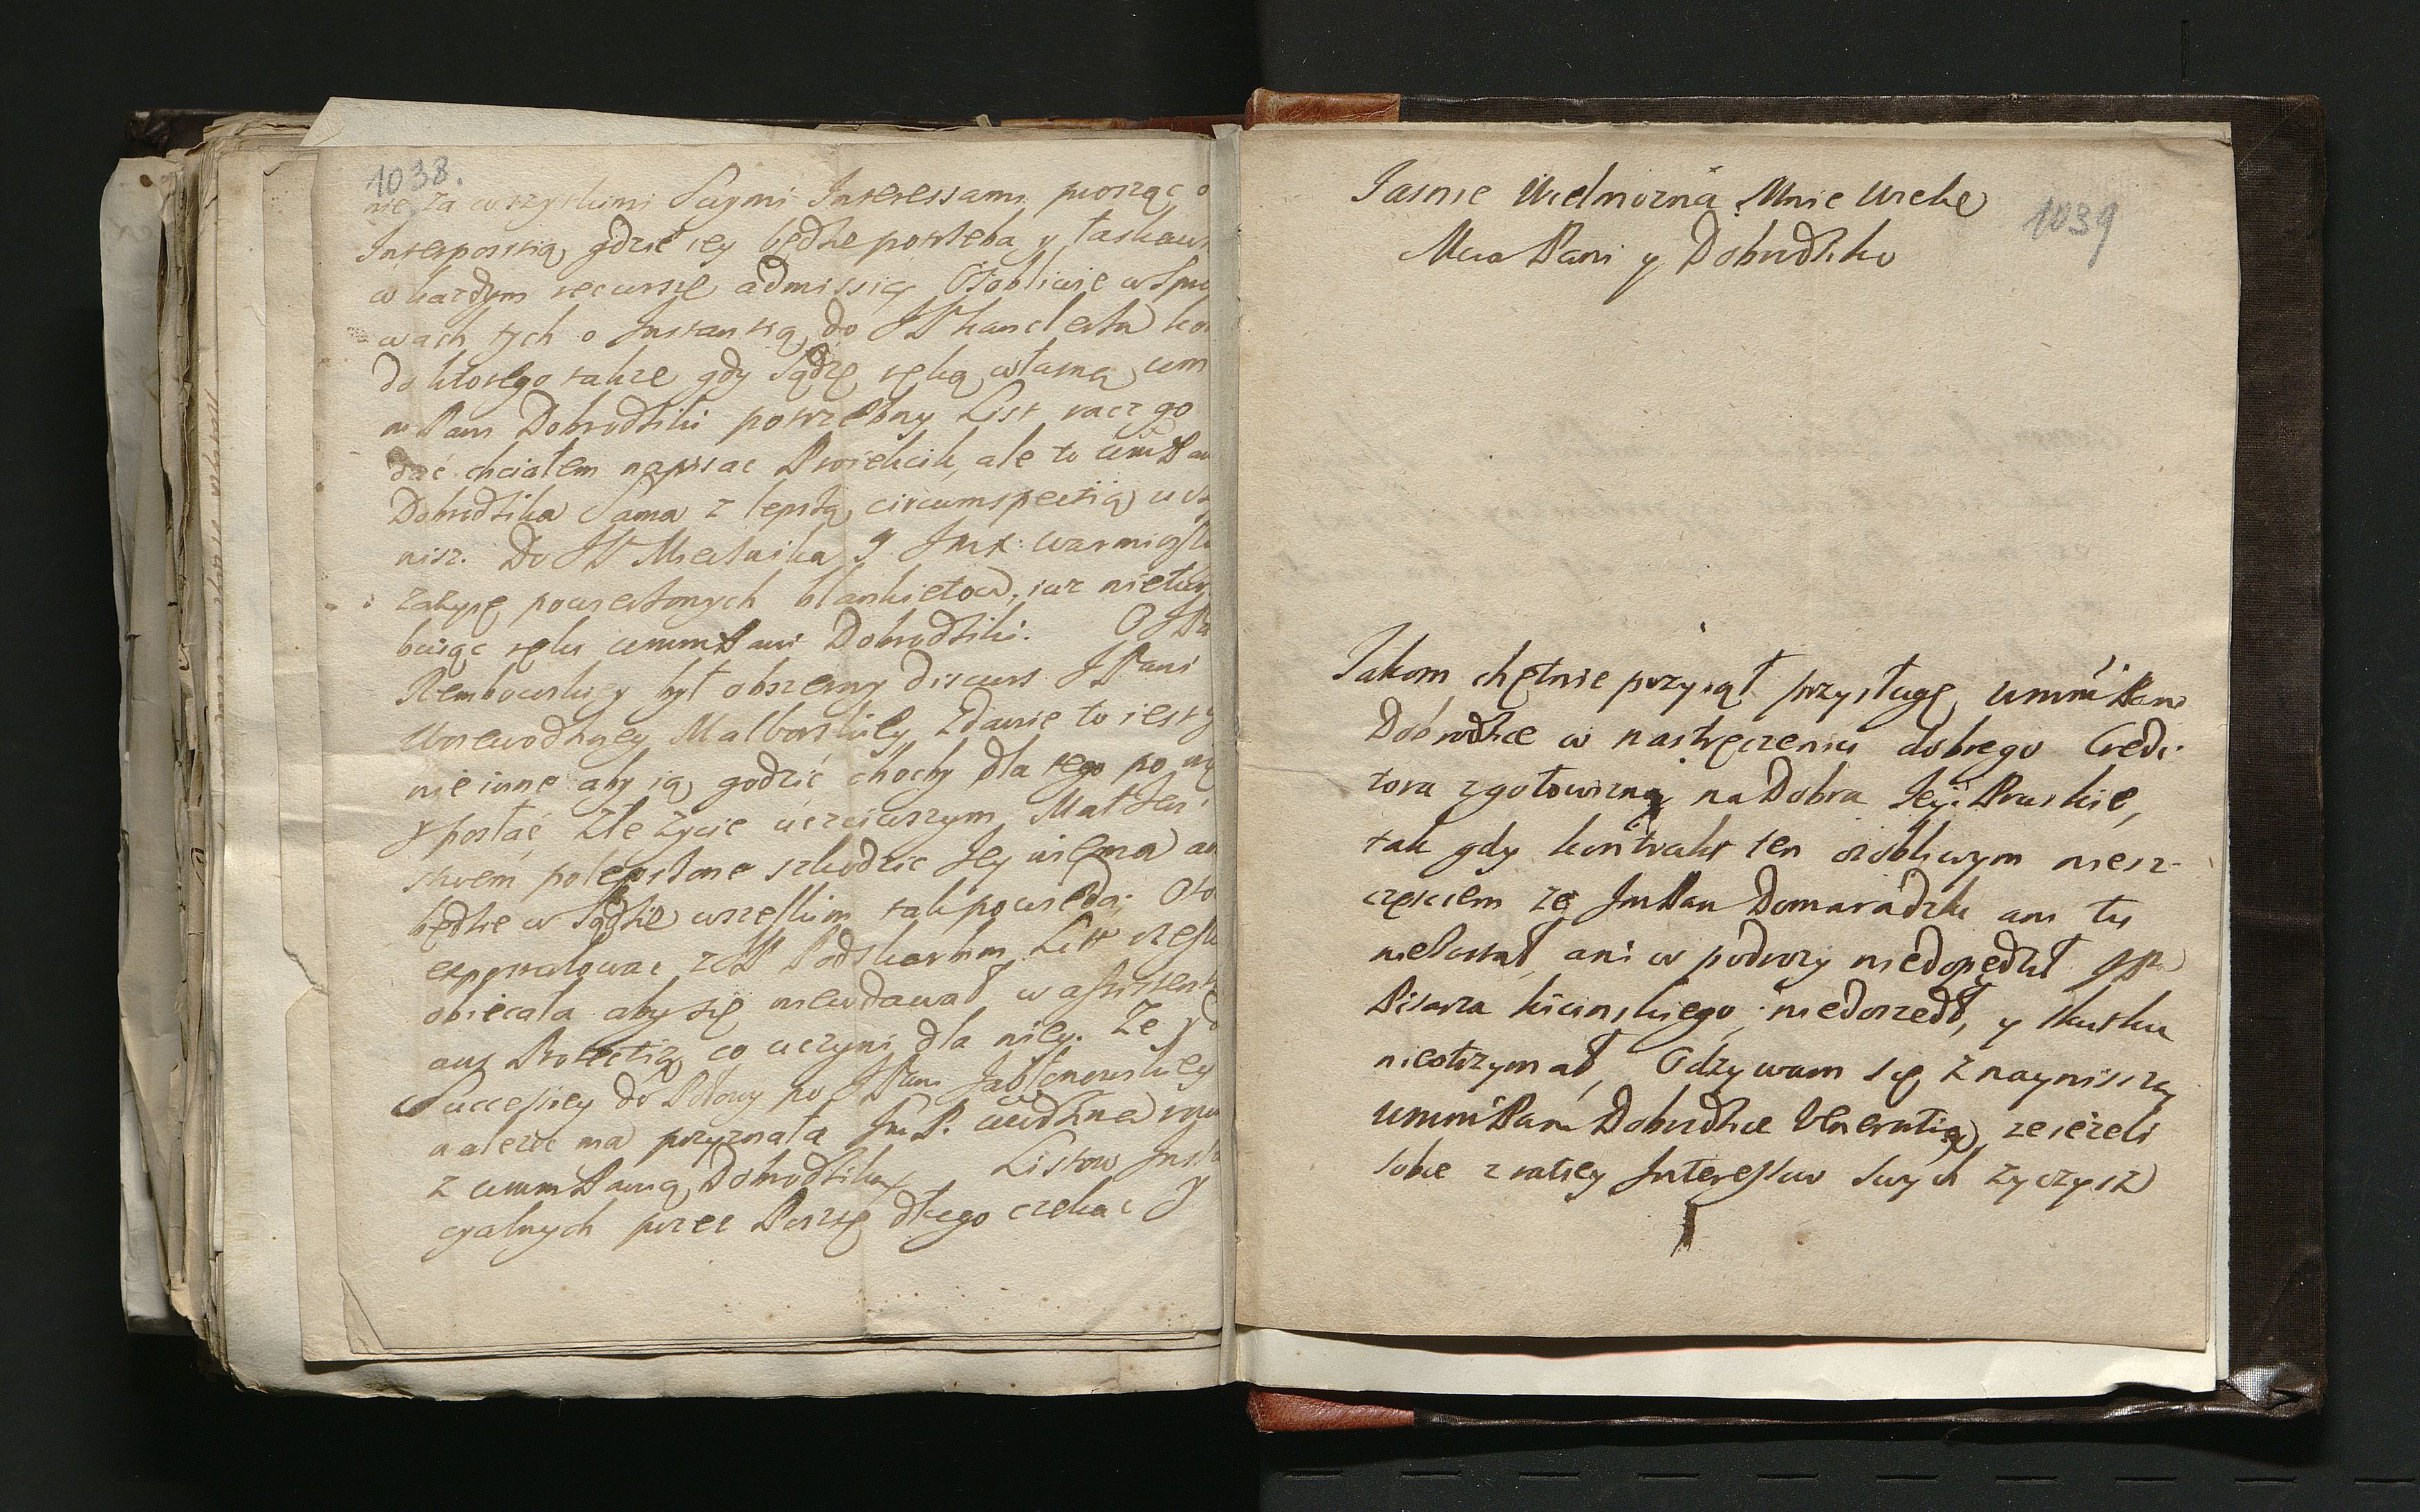 1038.
nie za wszystkimi Swymi Interessami prosząc o
Interpositią gdzie iey będzie potrzeba y łaskaw
w każdym recursie admissią Osobliwie w Spra
wach tych o Instantią do JP kanclerza ko
do ktorego także gdy sądzę ręką własną
Pani Dobrodziki potrzebny List racz go
dać chciałem napisac Proiekcik, ale to
Dobrodzika Sama z lepszą circumspectią uczy
nisz. Do JP Miecznika y Jmx Warmińsk
zażyię powierzonych blankietow, iuz nietur
buiąc ręki Pani Dobrodziki. O JPa
Rembowskiey był obszerny discurs JPani
Woiewodziney Malborskiey Zdanie to iest
nie inne aby ią godzić choćby dla tego
y postać złe życie uczciwszym Małżeń
stwem polepszone szkodzic Jey nie ma an
będzie w Sądzie wszelkim tak powieda: Oto
z JP Podskarbim List
obiecała aby się niewdawał w assistent
ani Protectią co uczyni dla niey. Ze
Successiey do Połowy po JPani Jabłonowskiey
należec ma przyznała Jm P.
z Panią Dobrodziką Listow Inst
cyalnych przez Posztę długo czekac y
1039
Jasnie Wielmozna Mnie Wielce
Mcia Pani y Dobrodziko
Jakom chętnie przyiął przysługę Pani
Dobrodzice w nastręczeniu dobrego Credi
tora z gotowizną na Dobra Jey Pruskie,
tak gdy kontrakt ten osobliwym niesz-
częsciem ze JmPan Domaradzki ani tu
niezostał ani w podrozy niedopędził JPa
Pisarza kicinskiego, niedoszedł, y skutku
nieotrzymał, Odzywam się z nayniszszą
Pani Dobrodzice Veneratią, ze iezeli
sobie z ratiey Interessow swych zyczysz